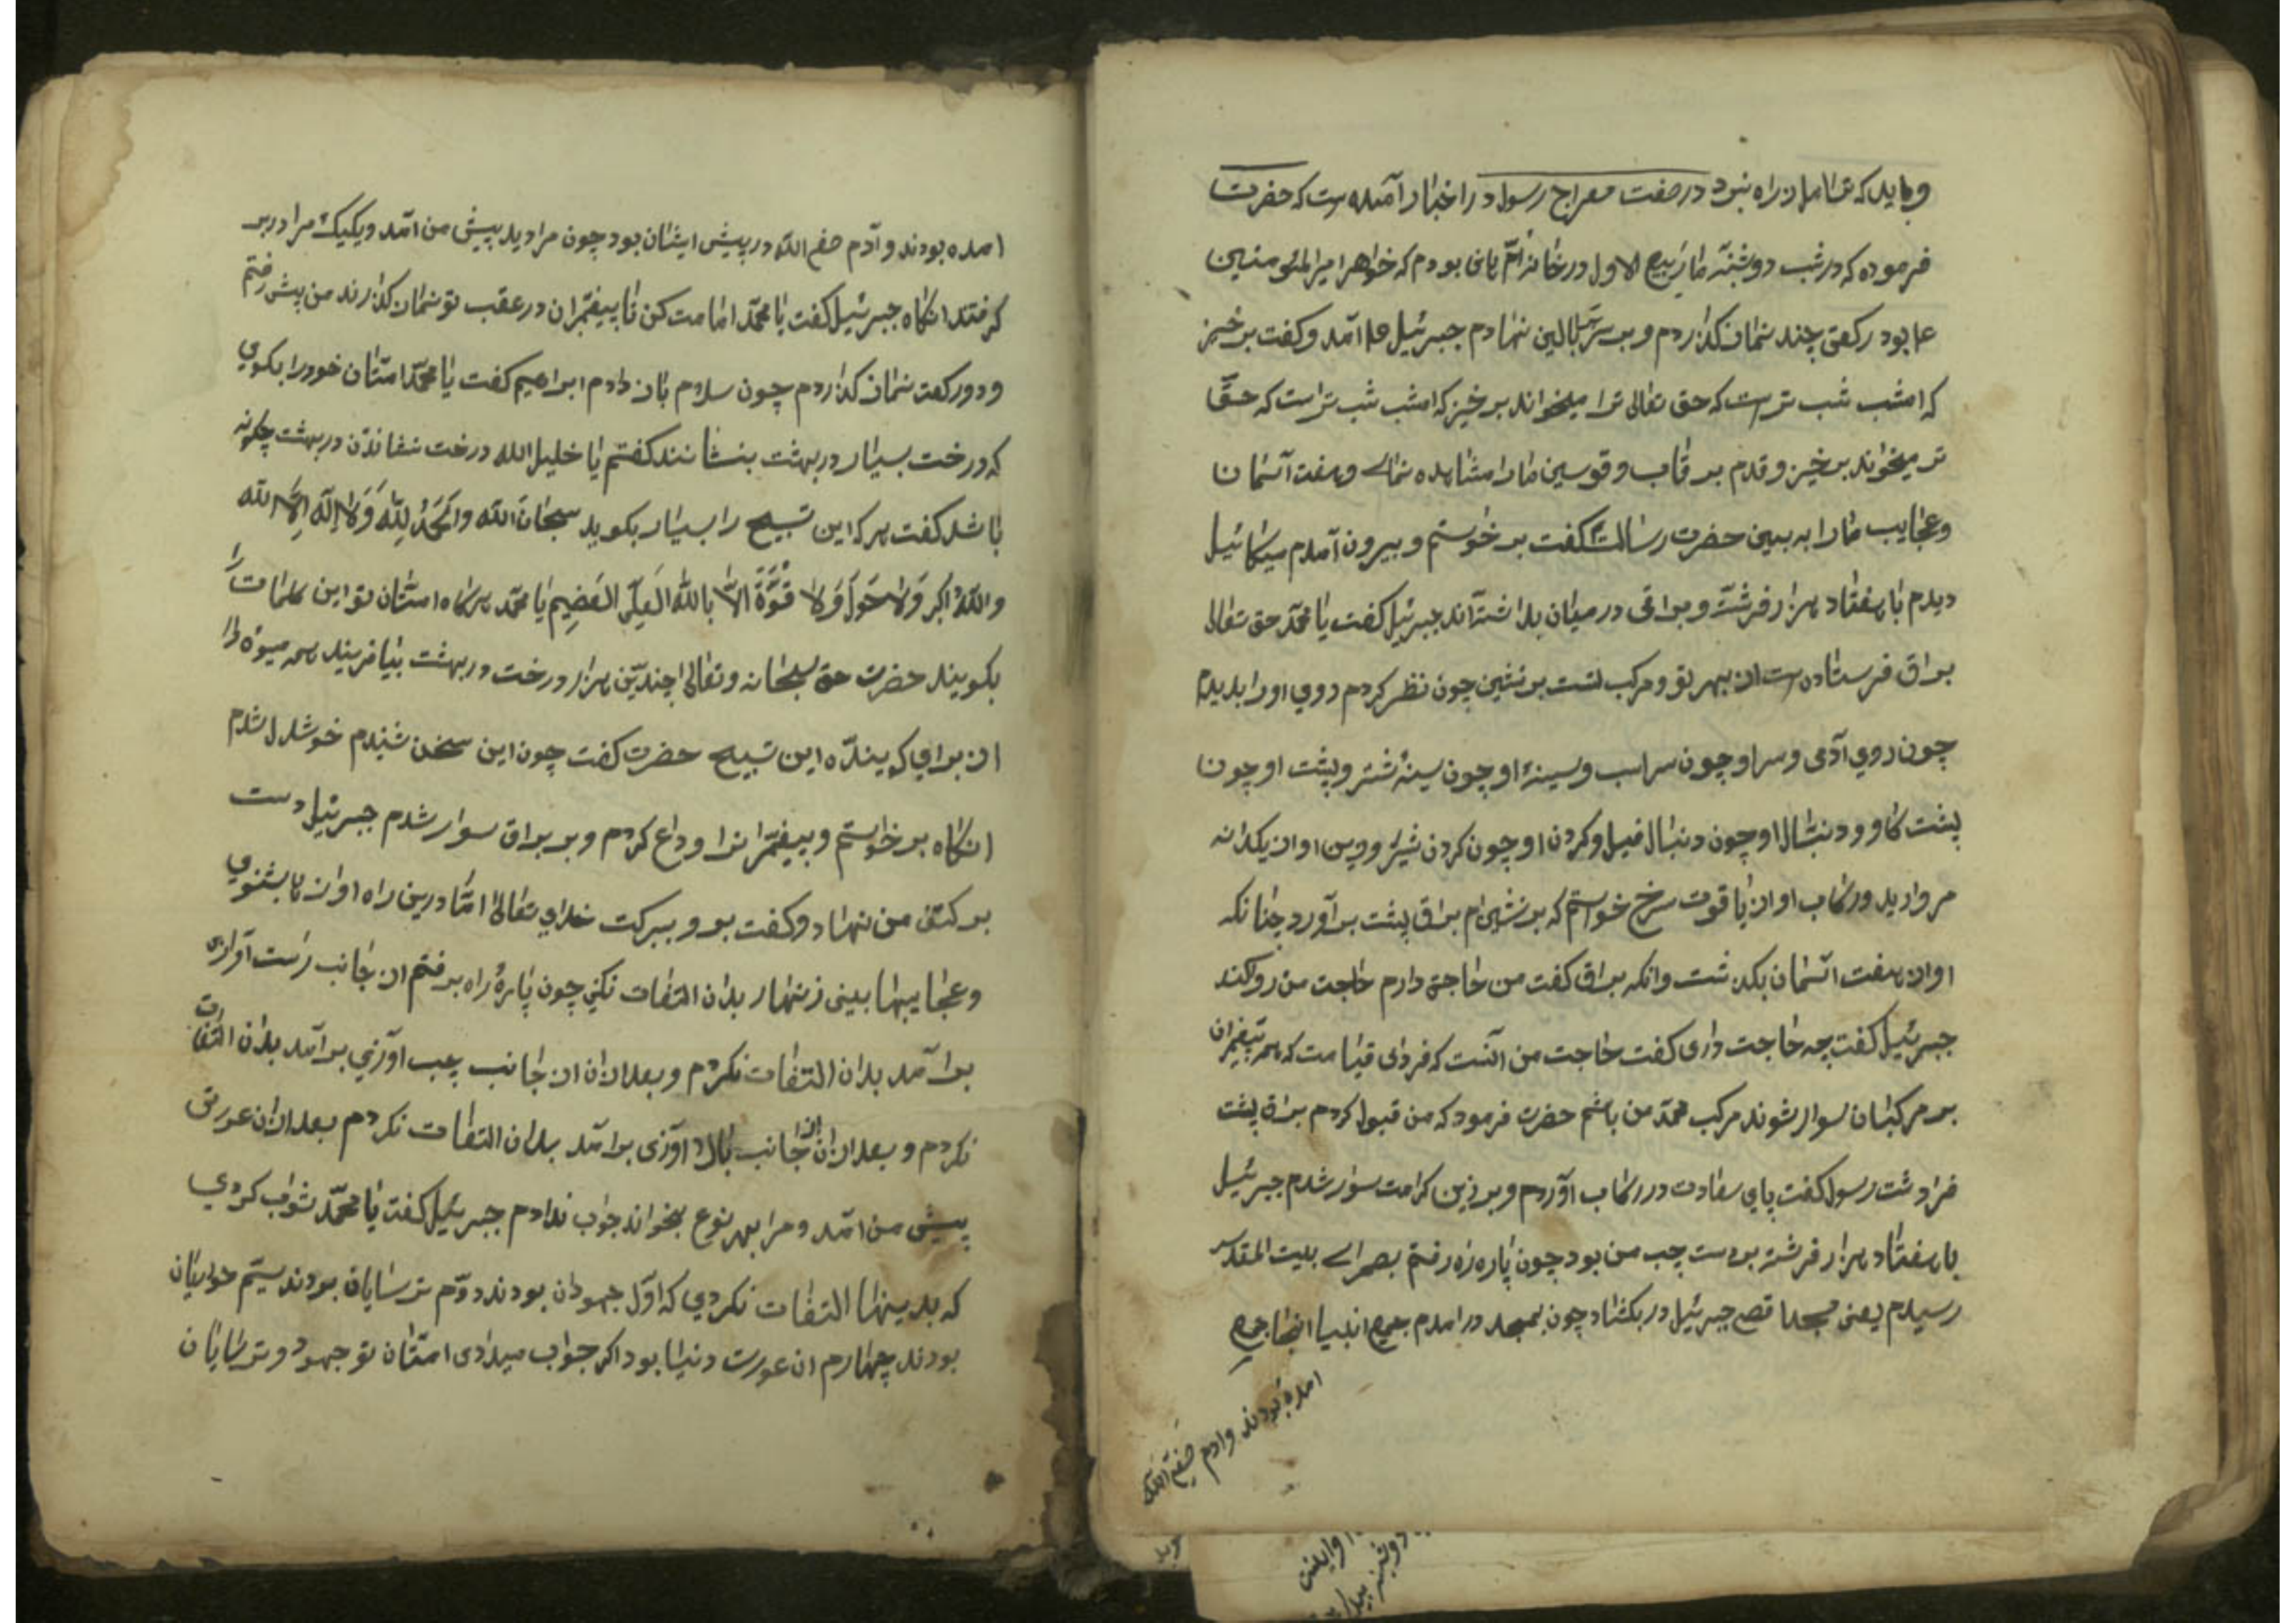 که شما را بدان راه نبود در صفت معراج رسول در اخبار آمده است که حضرت
فرموده که در شب دوشنبه ماه ربیع الاول در خانه ام هانی بودم که خواهر امیر المؤمنین
بود رکعتی چند نماز گذاردم و سر ببالین نهادم جبرئیل ع آمد و گفت بر خیز
که امشب شب تراست که حق تعالی ترا میخواند بر خیز که امشب شب تراست که حق
تر میخواند بر خیز و قدم بر قاب و قوسین ما را مشاهده نمای و هفت آسمان
وعجایب ما را به ببین حضرت رسالت گفت بر خواستم و بیرون آمدم میکائیل
دیدم با هفتاد هزار فرشته و براقی در میان بداشته‌اند جبرئیل گفت یا محمد حق تعالی
براق فرستاده است از بهر تو و مرکب تست بر نشین چون نظر کردم روی اورا بدیدم
چون روی آدمی و سر او چون سر اسب و سینهٔ او چون سینهٔ شتر و پشت او چون
پشت گاو و دنبال او چون دنبال فیل و گردن او چون گردن شیر و زین او از یکدانه
مروارید و رکاب او از یاقوت سرخ خواستم که بر نشینم براق پشت بر آورد چنانکه
او از هفت آسمان بگذشت وانگه براق گفت من حاجتی دارم حاجت من روا کند
جبرئیل گفت چه حاجت داری گفت حاجت من آنست که فردای قیامت که همه پیغمبران
بر مرکبان سوار شوند مرکب محمد من باشم حضرت فرمود که من قبول کردم براق پشت
فرا دشت رسول گفت پای سعادت در رکاب آوردم و بر زین کرامت سوار شدم جبرئیل
با هفتاد هزار فرشته بر دست چپ من بود چون پاره راه رفتم بصحرای بیت المقدس
رسیدم یعنی مسجد اقصی جبرئیل در بکشاد چون بمسجد در آمدم جمع انبیا آنجا جمع
امده بودند وادم صفی الله
امده بودند و آدم صفی الله در پیش ایشان بود چون مرا دید پیش من آمد و یکیک مرا در بر
گرفتند انگاه جبرئیل گفت یا محمد امامت کن تا پیغمبران در عقب تو نماز گذارند من پیش رفتم
و دو رکعت نماز گذاردم چون سلام باز دادم ابراهیم گفت یا محمد امتان خود را بگوی
که درخت بسیار در بهشت بنشانند گفتم یا خلیل الله درخت نشاندن در بهشت چگونه
باشد گفت هر که این تسبیح را بسیار بگوید سبحان الله والحمد لله وَلا إله إلا الله
والله اکبر وَلا حَول وَلا قُوَّةَ الا بالله العلی العضیم یا محمد هرگاه امتان تو این کلمات را
بگویند حضرت حق سبحانه و تعالی چندین هزار درخت در بهشت بیافریند همه میوه دار
از برای گوینده این تسبیح حضرت گفت چون این سخن شنیدم خوشدل شدم
انگاه بر خواستم و پیغمبرانرا وداع کردم و بر براق سوار شدم جبرئیل دست
بر کتف من نهاد و گفت برو ببرکت خدای تعالی اما درین راه اواز ها بشنوی
و عجایبها ببینی زنهار بدان التفات نکنی چون پارهٔ راه برفتم از جانب راست آوازی
بر آمد بدان التفات نکردم و بعد ازان از جانب چپ اوازی بر آمد بدان التفات
نکردم و بعد ازان از جانب بالا اوازی بر آمد بدان التفات نکردم بعد ازان عورتی
پیش من آمد و مرا بهر نوع بخواند جواب ندادم جبرئیل گفت یا محمد ثواب کردی
که بدینها التفات نکردی که اول جهودان بودند دوم ترسایان بودند سیم
بودند چهارم ان عورت دنیا بود اگر جواب میدادی امتان تو جهود و ترسایان